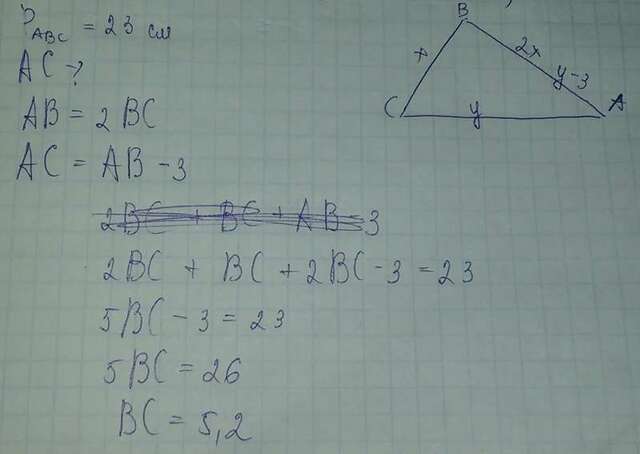 P ABC = 23 см
AC - ?
AB = 2 BC
AC = AB - 3
2BC + BC + AB - 3
2BC + BC + 2BC - 3 = 23
5BC - 3 = 23
5BC = 26
BC = 5,2
B
x
2x
y-3
C
y
A